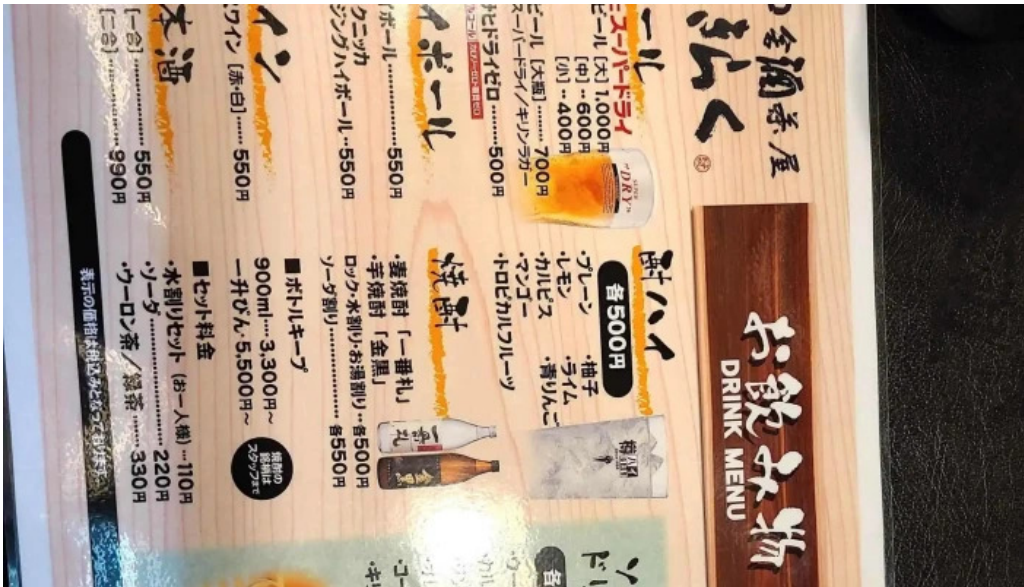 お飲み物
DRINK MENU
ール
スーパードライ
ビール [大] 1,000円
[中]‥600円
[小]‥400円
ビール [大瓶]‥‥‥700円
スーパードライ／キリンラガー
ヒドライゼロ‥‥‥500円
イボール
イボール‥‥‥‥‥550円
クニッカ
ジンジハイボール‥550円
イン
ワイン [赤・白]‥‥‥550円
本酒
[一合]‥‥‥‥‥‥550円
[二合]‥‥‥‥‥‥990円
酎ハイ
各500円
・プレーン
・レモン
・カルピス
・マンゴー
・トロピカルフルーツ
・柚子
・ライム
・青りんご
焼酎
・麦焼酎「一番札」
・芋焼酎「金黒」
ロック・水割り・お湯割り‥各500円
ソーダ割り‥‥‥‥‥‥‥各550円
■ボトルキープ
900ml‥‥3,300円〜
一升びん‥5,500円〜
焼酎の
銘柄は
スタッフまで
■セット料金
・水割りセット (お一人様)‥‥110円
・ソーダ‥‥‥‥‥‥‥‥220円
・ウーロン茶／緑茶‥‥‥‥330円
表示の価格は税込みとなっております。